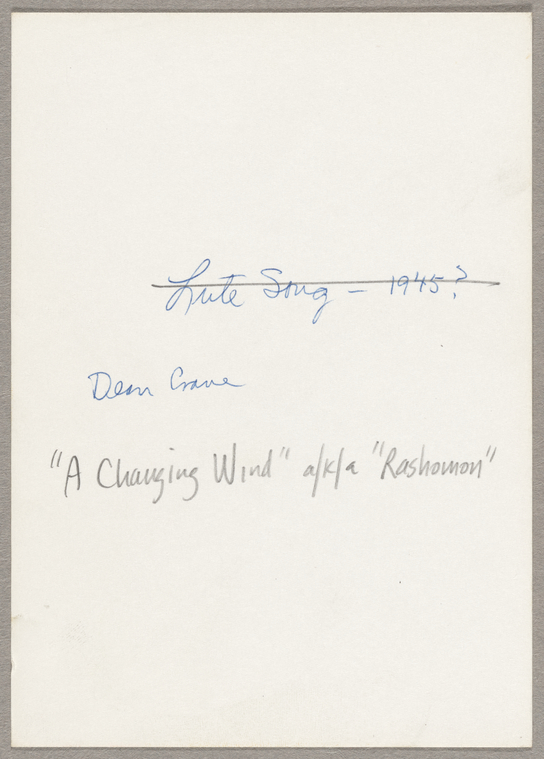 Lute Song - 1945?
Dean Crane
"A Changing Wind" a/k/a "Rashomon"